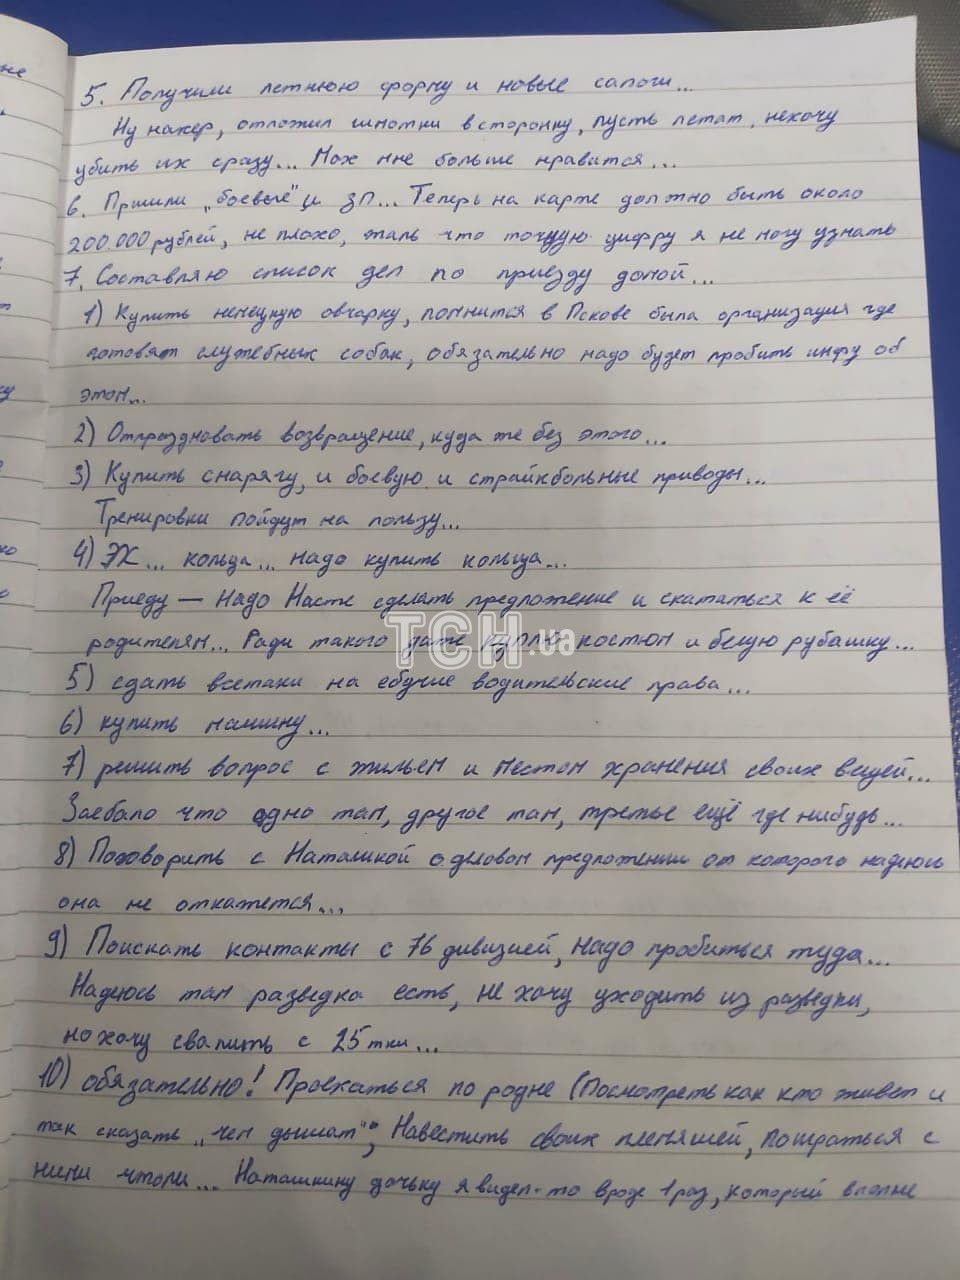 не
5. Получили летнюю форму и новые сапоги...
Ну нахер, отложил шмотки в сторонку, пусть летат, нехочу
убить их сразу... Мох мне больше нравится...
6. Пришли „боевые" и ЗП... Теперь на карте должно быть около
200.000 рублей, не плохо, жаль что точную цифру я не могу узнать
7. Составляю список дел по приезду домой...
1) Купить немецкую овчарку, помнится в Пскове была организация где
готовят служебных собак, обязательно надо будет пробить инфу об
этом...
2) Отпраздновать возвращение, куда же без этого...
3) Купить снарягу, и боевую и страйкбольные приводы...
Тренировки пойдут на пользу...
4) ЭХ... кольца... надо купить кольца...
Приеду — надо Насте сделать предложение и скататься к её
родителям... Ради такого даже куплю костюм и белую рубашку...
ТСН.ua
5) сдать всетаки на ебучие водительские права...
6) купить машину...
7) решить вопрос с жильем и местом хранения своих вещей...
Заебало что одно там, другое там, третье ещё где нибудь...
8) Поговорить с Наташкой о деловом предложении от которого надеюсь
она не откажется...
9) Поискать контакты с 76 дивизией, надо пробиться туда...
Надеюсь там разведка есть, не хочу уходить из разведки,
но хочу свалить с 25
10) обязательно! Проехаться по родне (Посмотреть как кто живет и
так сказать „чем дышат"; Навестить своих племяшей, поиграться с
ними чтоли... Наташкину дочьку я видел-то вроде 1 раз, который вполне